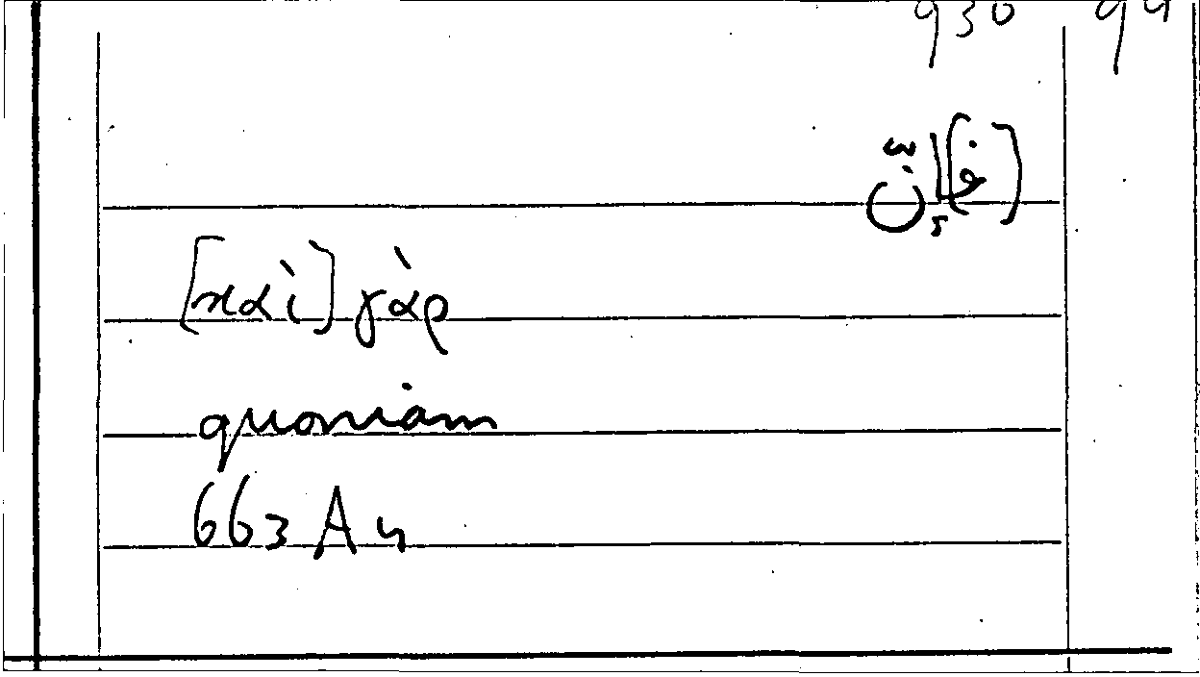 930 94
(ف)إنّ
[καὶ] γὰρ
quoniam
663 A 4